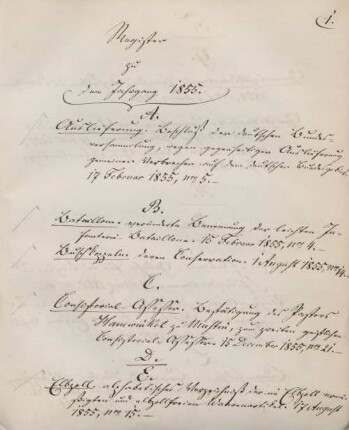 1.
Register
zu
dem Jahrgang 1855.
A.
Auslieferung. Beschluß der deutschen Bundes-
versammlung, wegen gegenseitiger Auslieferung
gemeiner Verbrecher auf dem deutschen Bundesgebiet.
17 Februar 1855, No 5.
B.
Bataillone. veränderte Benennung der leichten In-
fanterie Bataillone. 15 Februar 1855, No 4.
Buschkoppeln deren Conservation. 1 August 1855, No 14.
C.
Consistorial-Assessor. Bestätigung des Pastors
zu Mustin, zum zweiten geistlichen
Consistorial-Assessor. 15 December 1855, No 21.
D.
E.
Elbzoll. alphabetisches Verzeichniß der im Elbzoll ermä-
ßigten und elbzollfreien Waarenartikel. 17 August
1855, No 15.